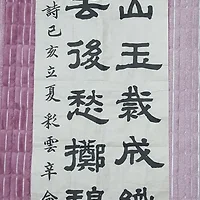 山玉裁成織
去後愁擲碧
詩己亥立夏彩雲辛